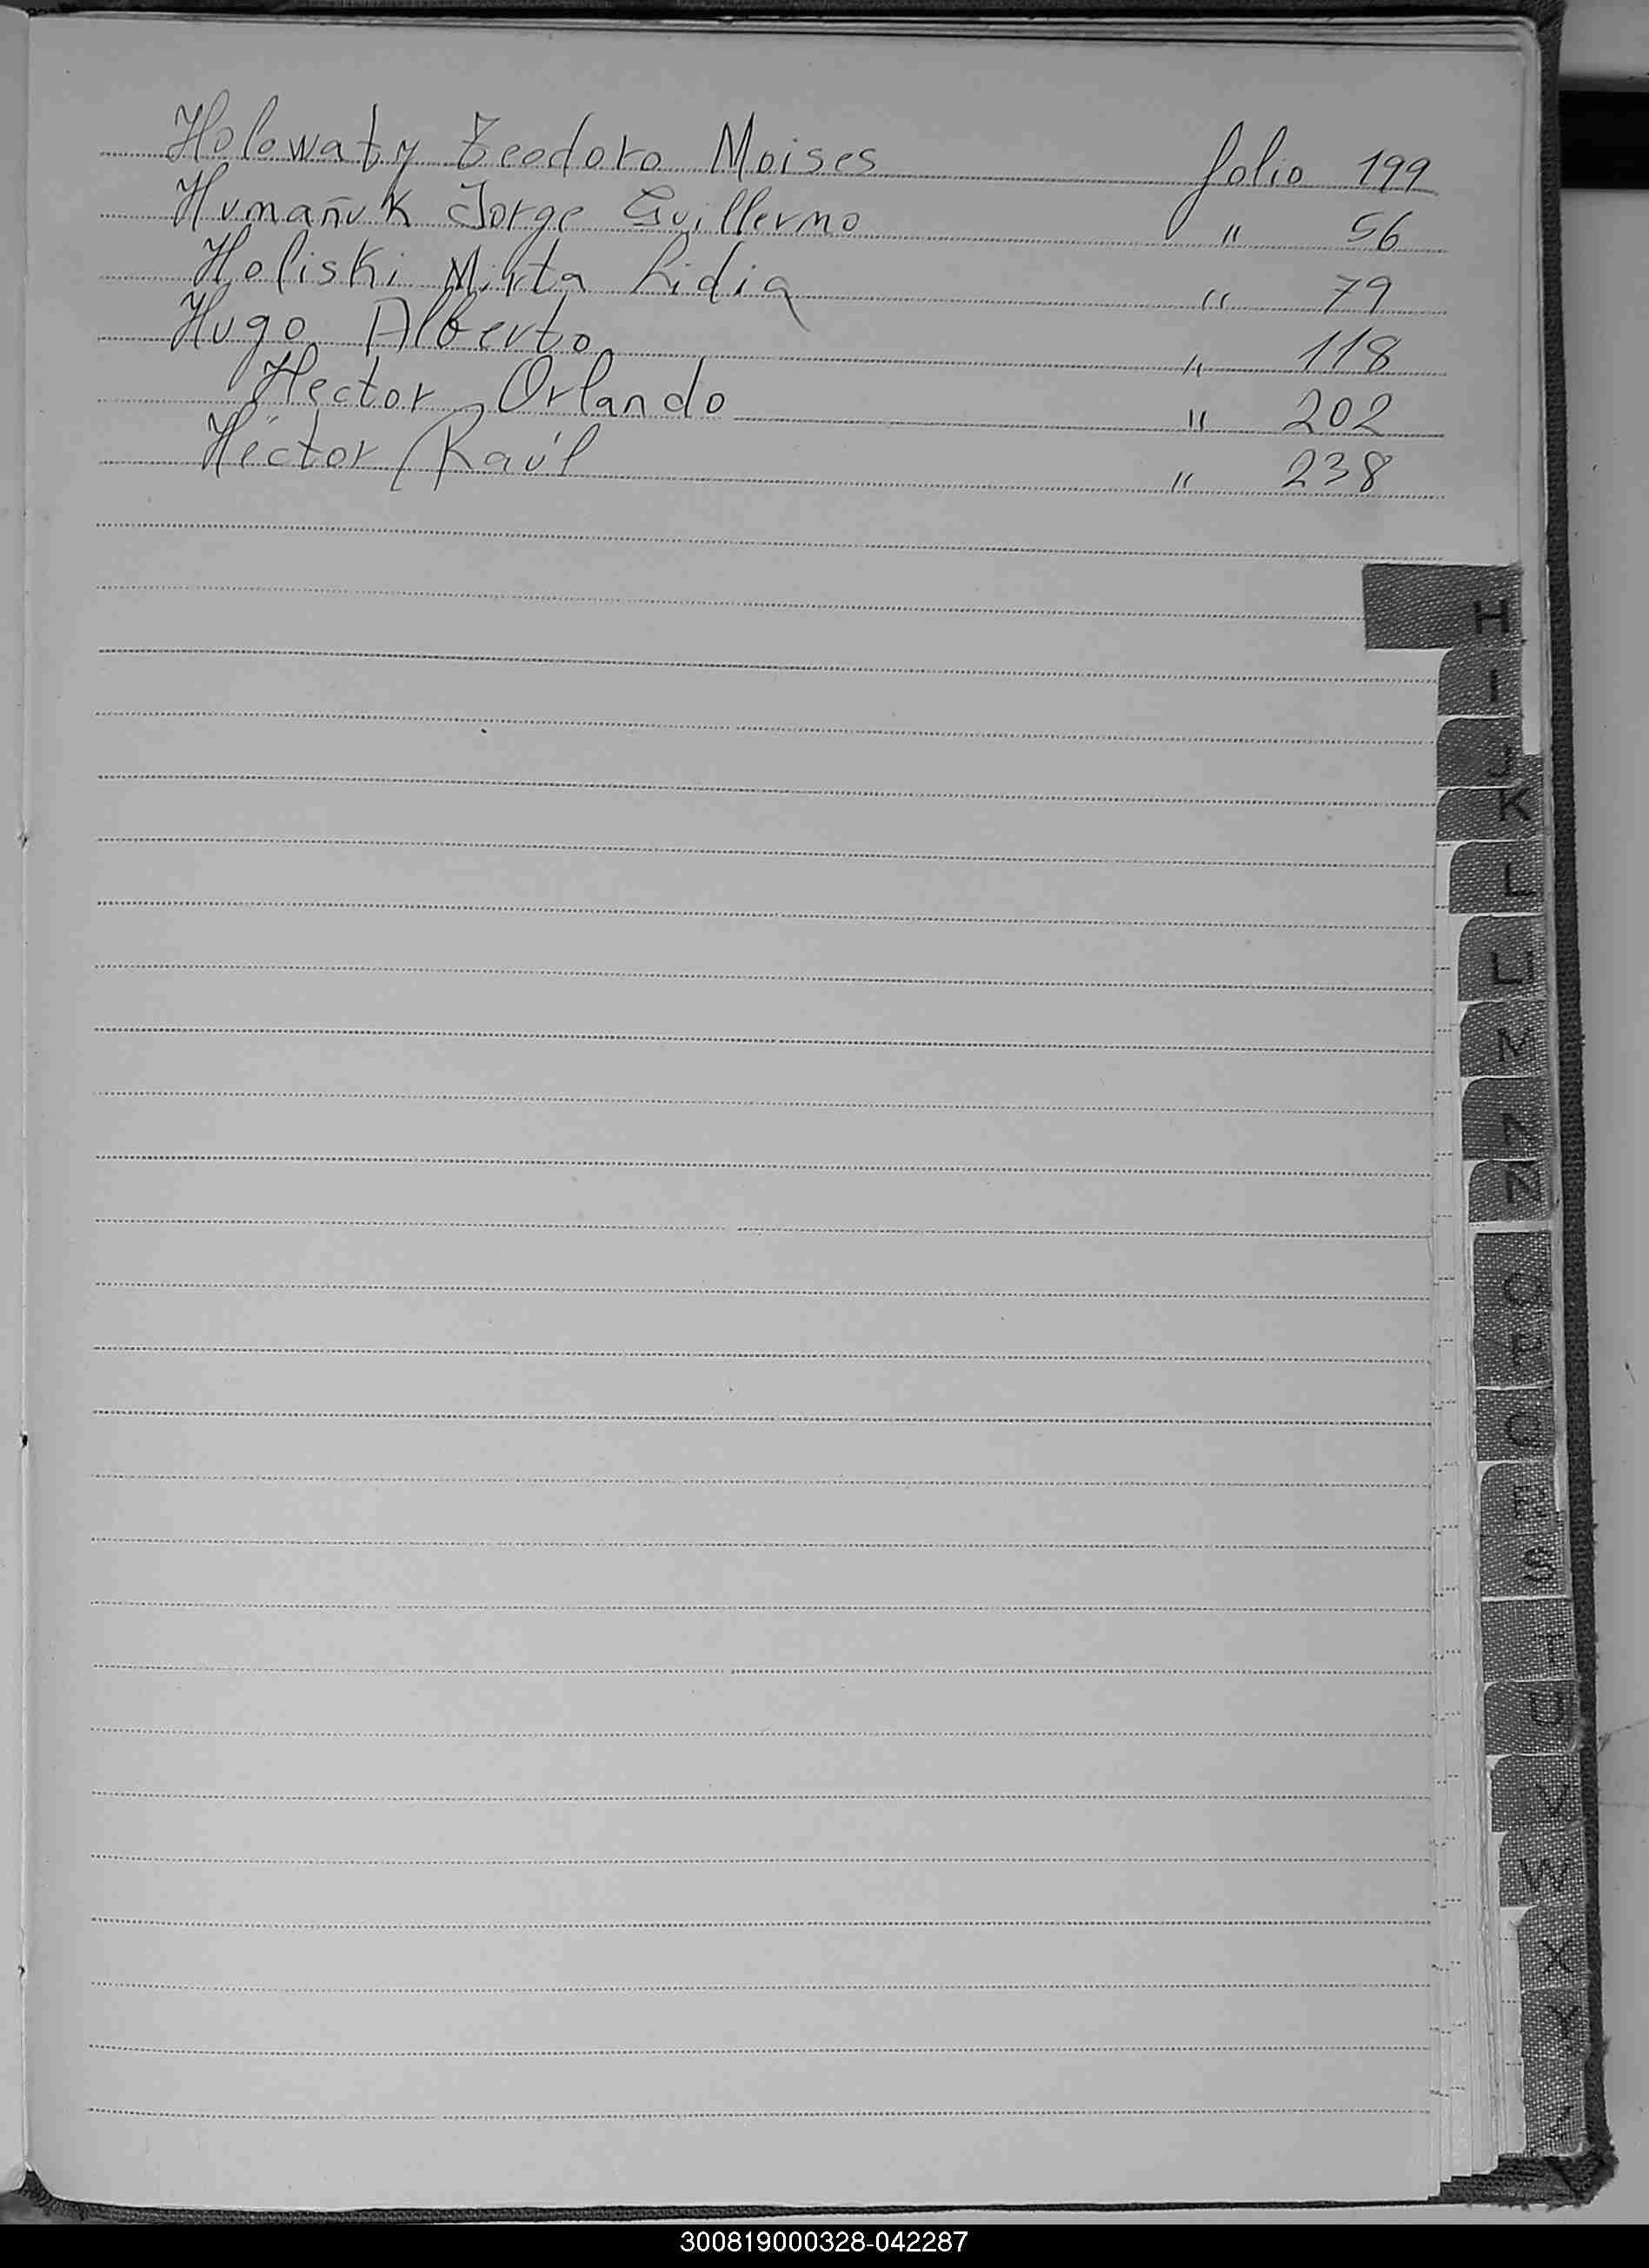 Holowaty Teodoro Moises folio 199
Humañuk Jorge Guillermo " 56
Holiski Mirta Lidia " 79
Hugo Alberto " 118
Hector Orlando " 202
Héctor Raúl " 238
H
I
J
K
L
LL
M
N
Ñ
O
P
Q
R
S
T
U
V
W
X
Y
300819000328-042287